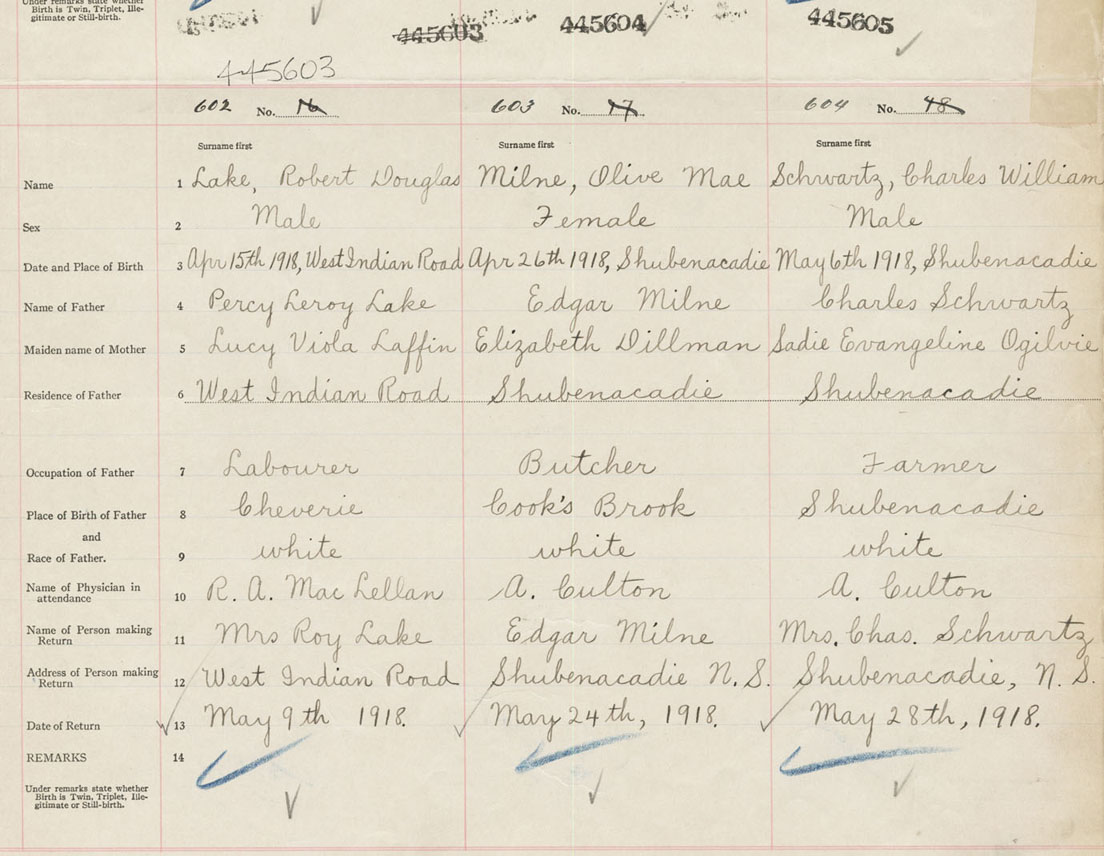 Under remarks state whether
Birth is Twin, Triplet, Ille-
gitimate or Still-birth.
445603 445604 445605
445603
602 No. 16 603 No. 17 604 No. 18
Surname first Surname first Surname first
Name 1 Lake, Robert Douglas Milne, Olive Mae Schwartz, Charles William
Sex 2 Male Female Male
Date and Place of Birth 3 Apr 15th 1918, West Indian Road Apr 26th 1918, Shubenacadie May 6th 1918, Shubenacadie
Name of Father 4 Percy Leroy Lake Edgar Milne Charles Schwartz
Maiden name of Mother 5 Lucy Viola Laffin Elizabeth Dillman Sadie Evangeline Ogilvie
Residence of Father 6 West Indian Road Shubenacadie Shubenacadie
Occupation of Father 7 Labourer Butcher Farmer
Place of Birth of Father 8 Cheverie Cook's Brook Shubenacadie
and
Race of Father. 9 white white white
Name of Physician in
attendance 10 R. A. Mac Lellan A. Culton A. Culton
Name of Person making
Return 11 Mrs Roy Lake Edgar Milne Mrs. Chas. Schwartz
Address of Person making
Return 12 West Indian Road Shubenacadie N.S. Shubenacadie, N.S.
Date of Return 13 May 9th 1918. May 24th, 1918. May 28th, 1918.
REMARKS 14
Under remarks state whether
Birth is Twin, Triplet, Ille-
gitimate or Still-birth.